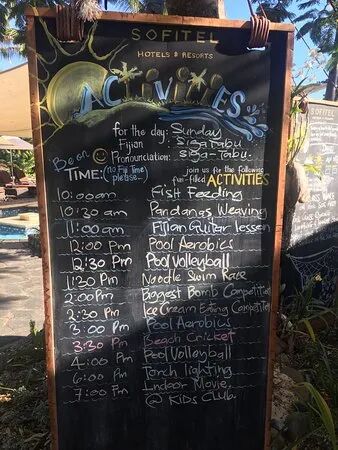 SOFITEL
HOTELS & RESORTS
ACTIVITIES
for the day: Sunday
Fijian: SigaTabu
Pronounciation: Siga-Tabu.
Be on
TIME: (no Fiji Time) please...
join us for the following
fun-filled ACTIVITIES
10:00am Fish Feeding
10:30 am Pandanas Weaving
11:00am Fijian Guitar lesson
12:00 Pm Pool Aerobics
12:30 Pm Pool Volleyball
1:30 Pm Noodle Swim Race
2:00 Pm Biggest Bomb Competition
2:30 Pm Ice Cream Eating Competition
3:00 Pm Pool Aerobics
3:30 Pm Beach Cricket
4:00 Pm Pool Volleyball
6:00 Pm Torch lighting
7:00 Pm Indoor Movie
@ KIDS CLUB.
SOFITEL